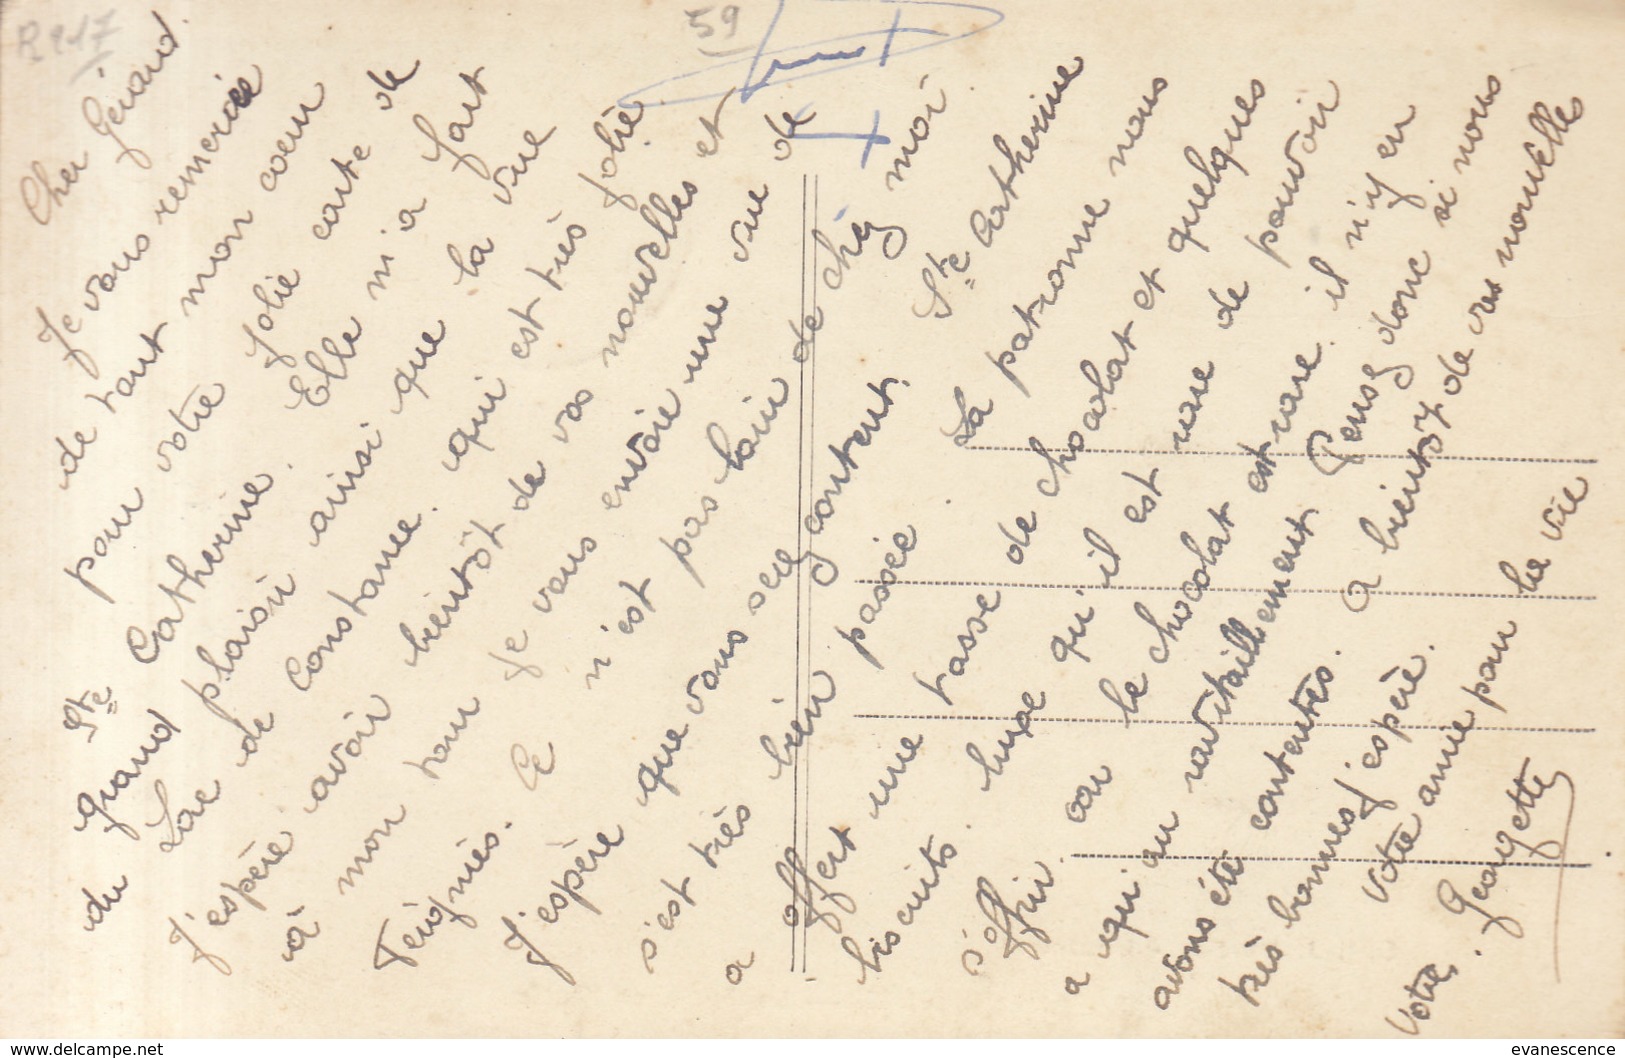 R217
59
Cher Gérard.
Je vous remercie
de tout mon coeur
pour votre jolie carte de
Ste Catherine. Elle m'a fait
du grand plaisir ainsi que la vue
Lac de Constance. qui est très jolie
J'espère avoir bientôt de vos nouvelles et
à mon tour je vous envoie une vue de
Teignies. Ce n'est pas loin de chez moi
J'espère que vous serez content. Ste Catherine
s'est très bien passée. La patronne nous
a offert une tasse de chocolat et quelques
biscuits. luxe qu'il est rare de pouvoir
s'offrir car le chocolat est rare. il n'y en
a qu'au ravitaillement Pensez donc si nous
avons été contentes. A bientôt de vos nouvelles
très bonnes j'espère.
Votre amie pour la vie
Votre. Georgette
www.delcampe.net
evanescence